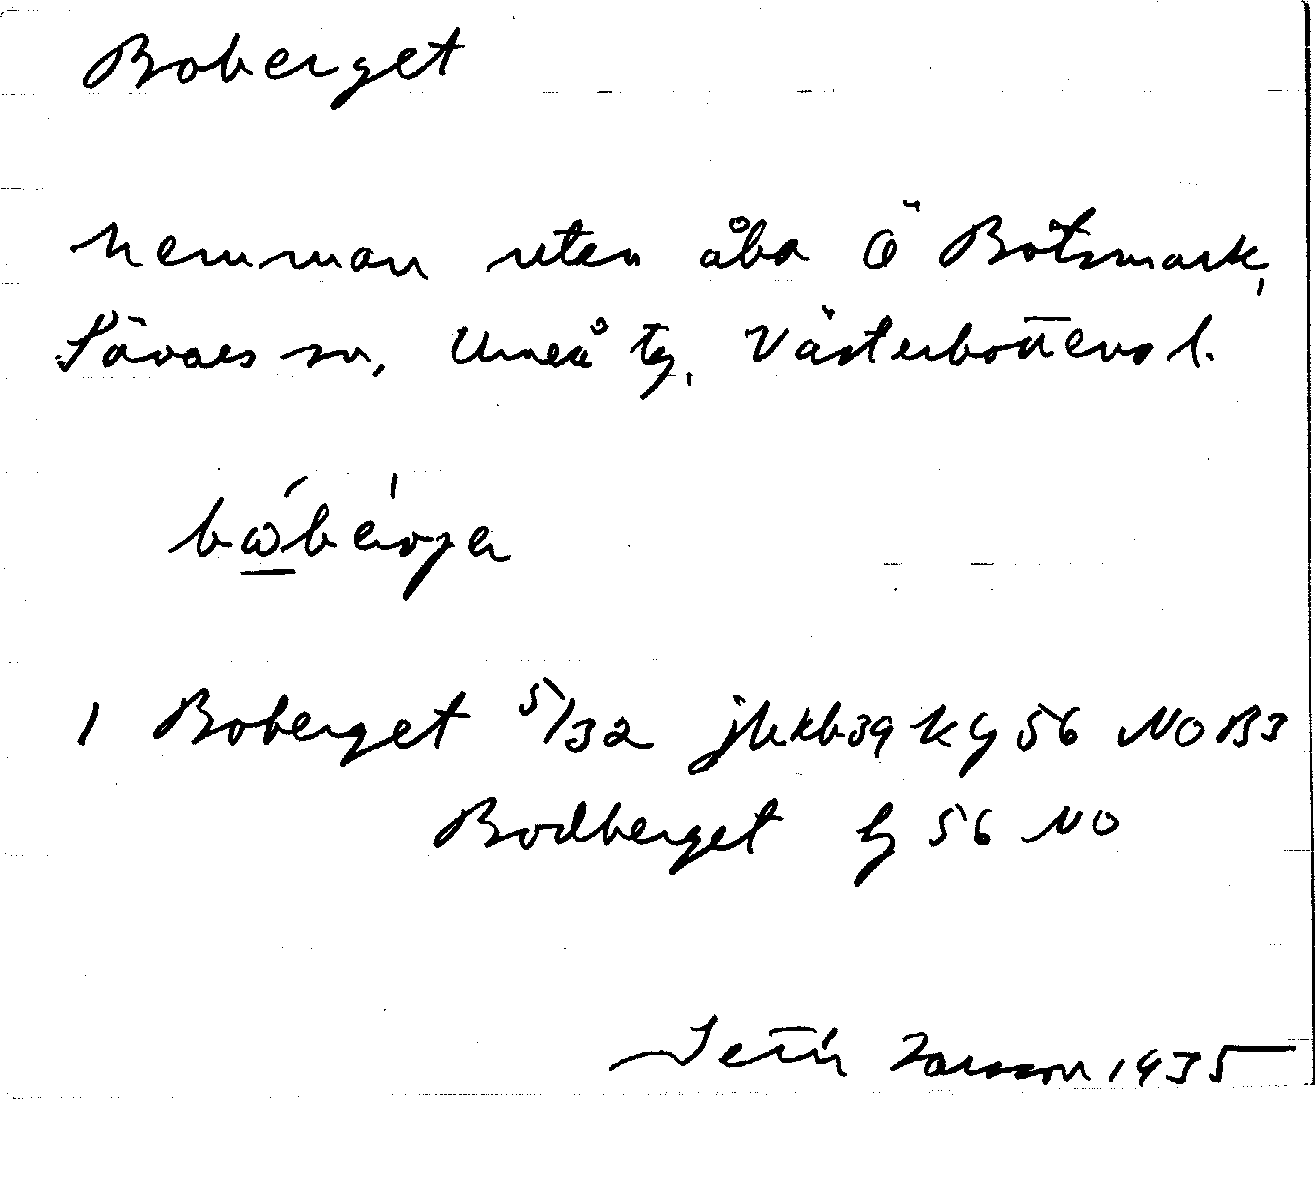 Boberget
hemman utan åbo Ö Botsmark,
Sävars sn, Umeå tg, Västerbottens l.
bώ̲bèrjɐ
1 Boberget 5/32 jbkb39 kg 56 NO B3
Bodberget kg 56 NO
Setin Larsson 1935